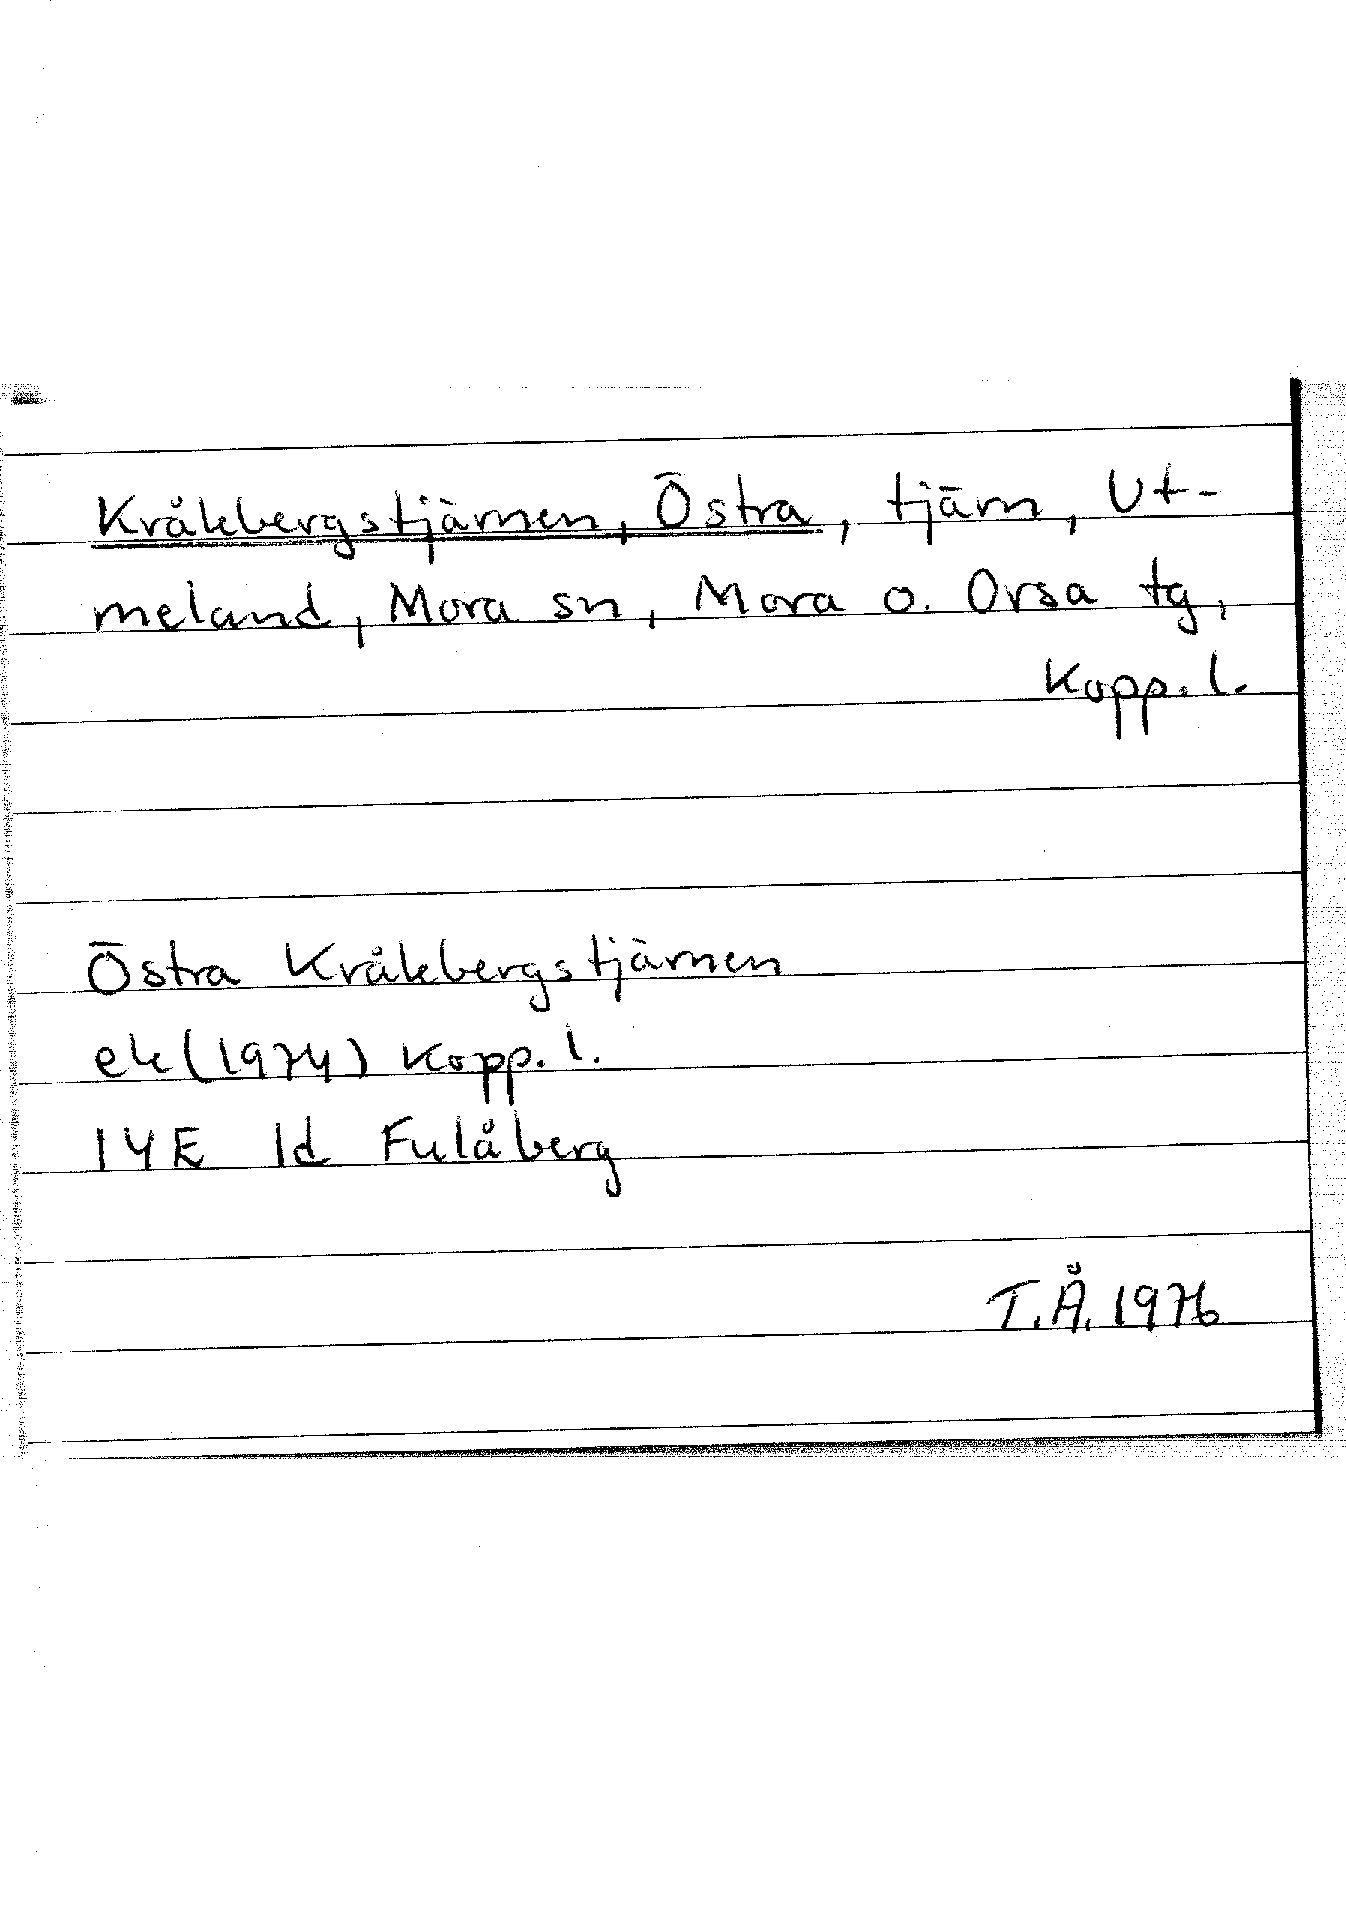 Kråkbergstjärnen, Östra, tjärn, Ut-
meland, Mora sn, Mora o. Orsa tg,
Kopp. l.
Östra Kråkbergstjärnen
ek (1974) Kopp. l.
14E 1d Fulåberg
T.Å. 1976